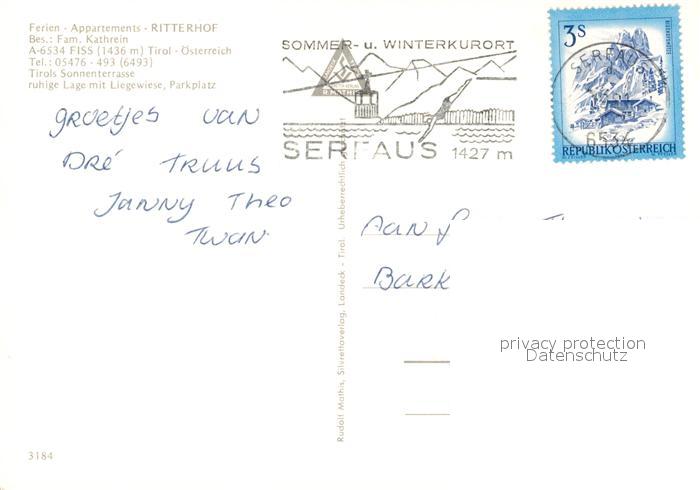 Ferien - Appartements - RITTERHOF
Bes.: Fam. Kathrein
A-6534 FISS (1436 m) Tirol - Österreich
Tel.: 05476 - 493 (6493)
Tirols Sonnenterrasse
ruhige Lage mit Liegewiese, Parkplatz
groetjes van
Dré Truus
Janny Theo
Twan
3184
Rudolf Mathis, Silvrettaverlag, Landeck - Tirol Urheberrechtlich
SOMMER- u. WINTERKURORT
SERFAUS 1427 m
3S
SERFAUS
6534
REPUBLIK ÖSTERREICH
Aan
Bark
privacy protection
Datenschutz